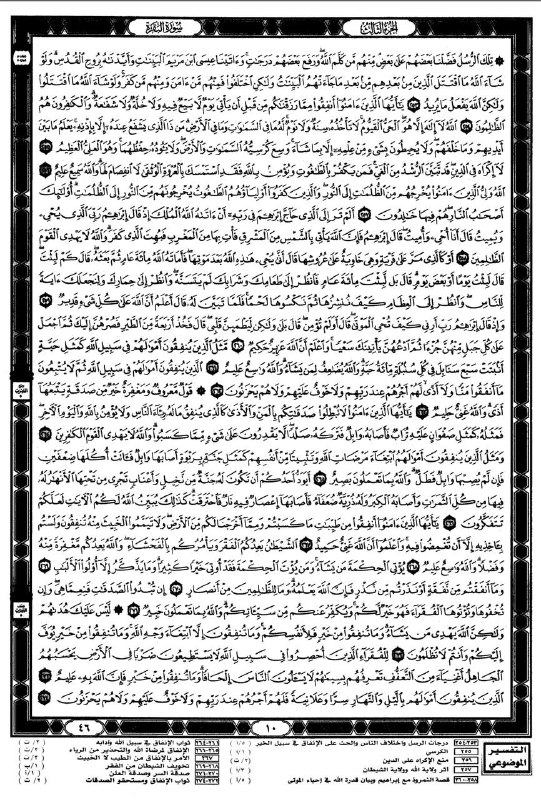 الجزء الثالث
سورة البقرة
تلك الرسل فضلنا بعضهم على بعض منهم من كلم الله ورفع بعضهم درجات وءاتينا عيسى ابن مريم البينات وأيدناه بروح القدس ولو
شاء الله ما اقتتل الذين من بعدهم من بعد ما جاءتهم البينات ولكن اختلفوا فمنهم من ءامن ومنهم من كفر ولو شاء الله ما اقتتلوا
ولكن الله يفعل ما يريد ٢٥٣ يأيها الذين ءامنوا أنفقوا مما رزقناكم من قبل أن يأتي يوم لا بيع فيه ولا خلة ولا شفاعة والكافرون هم
الظالمون ٢٥٤ الله لا إله إلا هو الحي القيوم لا تأخذه سنة ولا نوم له ما في السماوات وما في الأرض من ذا الذي يشفع عنده إلا بإذنه يعلم ما بين
أيديهم وما خلفهم ولا يحيطون بشيء من علمه إلا بما شاء وسع كرسيه السماوات والأرض ولا يئوده حفظهما وهو العلي العظيم ٢٥٥
لا إكراه في الدين قد تبين الرشد من الغي فمن يكفر بالطاغوت ويؤمن بالله فقد استمسك بالعروة الوثقى لا انفصام لها والله سميع عليم ٢٥٦
الله ولي الذين ءامنوا يخرجهم من الظلمات إلى النور والذين كفروا أولياؤهم الطاغوت يخرجونهم من النور إلى الظلمات أولئك
أصحاب النار هم فيها خالدون ٢٥٧ ألم تر إلى الذي حاج إبراهم في ربه أن ءاتاه الله الملك إذ قال إبراهم ربي الذي يحي
ويميت قال أنا أحي وأميت قال إبراهم فإن الله يأتي بالشمس من المشرق فأت بها من المغرب فبهت الذي كفر والله لا يهدي القوم
الظالمين ٢٥٨ أو كالذي مر على قرية وهي خاوية على عروشها قال أنى يحي هذه الله بعد موتها فأماته الله مائة عام ثم بعثه قال كم لبثت
قال لبثت يوما أو بعض يوم قال بل لبثت مائة عام فانظر إلى طعامك وشرابك لم يتسنه وانظر إلى حمارك ولنجعلك ءاية
للناس وانظر إلى العظام كيف ننشزها ثم نكسوها لحما فلما تبين له قال أعلم أن الله على كل شيء قدير ٢٥٩
وإذ قال إبراهم رب أرني كيف تحي الموتى قال أولم تؤمن قال بلى ولكن ليطمئن قلبي قال فخذ أربعة من الطير فصرهن إليك ثم اجعل
على كل جبل منهن جزءا ثم ادعهن يأتينك سعيا واعلم أن الله عزيز حكيم ٢٦٠ مثل الذين ينفقون أموالهم في سبيل الله كمثل حبة
أنبتت سبع سنابل في كل سنبلة مائة حبة والله يضاعف لمن يشاء والله واسع عليم ٢٦١ الذين ينفقون أموالهم في سبيل الله ثم لا يتبعون
ما أنفقوا منا ولا أذى لهم أجرهم عند ربهم ولا خوف عليهم ولا هم يحزنون ٢٦٢ قول معروف ومغفرة خير من صدقة يتبعها
أذى والله غني حليم ٢٦٣ يأيها الذين ءامنوا لا تبطلوا صدقاتكم بالمن والأذى كالذي ينفق ماله رئاء الناس ولا يؤمن بالله واليوم الآخر
فمثله كمثل صفوان عليه تراب فأصابه وابل فتركه صلدا لا يقدرون على شيء مما كسبوا والله لا يهدي القوم الكافرين ٢٦٤
ومثل الذين ينفقون أموالهم ابتغاء مرضات الله وتثبيتا من أنفسهم كمثل جنة بربوة أصابها وابل فئاتت أكلها ضعفين
فإن لم يصبها وابل فطل والله بما تعملون بصير ٢٦٥ أيود أحدكم أن تكون له جنة من نخيل وأعناب تجري من تحتها الأنهار له
فيها من كل الثمرات وأصابه الكبر وله ذرية ضعفاء فأصابها إعصار فيه نار فاحترقت كذلك يبين الله لكم الآيات لعلكم
تتفكرون ٢٦٦ يأيها الذين ءامنوا أنفقوا من طيبات ما كسبتم ومما أخرجنا لكم من الأرض ولا تيمموا الخبيث منه تنفقون ولستم
بئاخذيه إلا أن تغمضوا فيه واعلموا أن الله غني حميد ٢٦٧ الشيطان يعدكم الفقر ويأمركم بالفحشاء والله يعدكم مغفرة منه
وفضلا والله واسع عليم ٢٦٨ يؤتي الحكمة من يشاء ومن يؤت الحكمة فقد أوتي خيرا كثيرا وما يذكر إلا أولوا الألباب ٢٦٩
وما أنفقتم من نفقة أو نذرتم من نذر فإن الله يعلمه وما للظالمين من أنصار ٢٧٠ إن تبدوا الصدقات فنعما هي وإن
تخفوها وتؤتوها الفقراء فهو خير لكم ويكفر عنكم من سيئاتكم والله بما تعملون خبير ٢٧١ ليس عليك هداهم
ولكن الله يهدي من يشاء وما تنفقوا من خير فلأنفسكم وما تنفقون إلا ابتغاء وجه الله وما تنفقوا من خير يوف
إليكم وأنتم لا تظلمون ٢٧٢ للفقراء الذين أحصروا في سبيل الله لا يستطيعون ضربا في الأرض يحسبهم
الجاهل أغنياء من التعفف تعرفهم بسيماهم لا يسئلون الناس إلحافا وما تنفقوا من خير فإن الله به عليم ٢٧٣
الذين ينفقون أموالهم بالليل والنهار سرا وعلانية فلهم أجرهم عند ربهم ولا خوف عليهم ولا هم يحزنون ٢٧٤
١٠
٤٦
التفسير الموضوعي
٢٥٣-٢٥٤ درجات الرسل واختلاف الناس والحث على الإنفاق في سبيل الخير
٢٥٥ الكرسي
٢٥٦ منع الإكراه على الدين
٢٥٧ أثر ولاية الله وولاية الشيطان
٢٥٨-٢٦٠ قصة النمرود مع إبراهيم وبيان قدرة الله في إحياء الموتى
٢٦١-٢٦٤ ثواب الإنفاق في سبيل الله وآدابه
٢٦٥-٢٦٦ الإنفاق لمرضاة الله والتحذير من الرياء
٢٦٧ الأمر بالإنفاق من الطيب لا الخبيث
٢٦٨-٢٦٩ تخويف الشيطان من الفقر
٢٧٠-٢٧١ صدقة السر وصدقة العلن
٢٧٢-٢٧٤ ثواب الإنفاق ومستحقو الصدقات